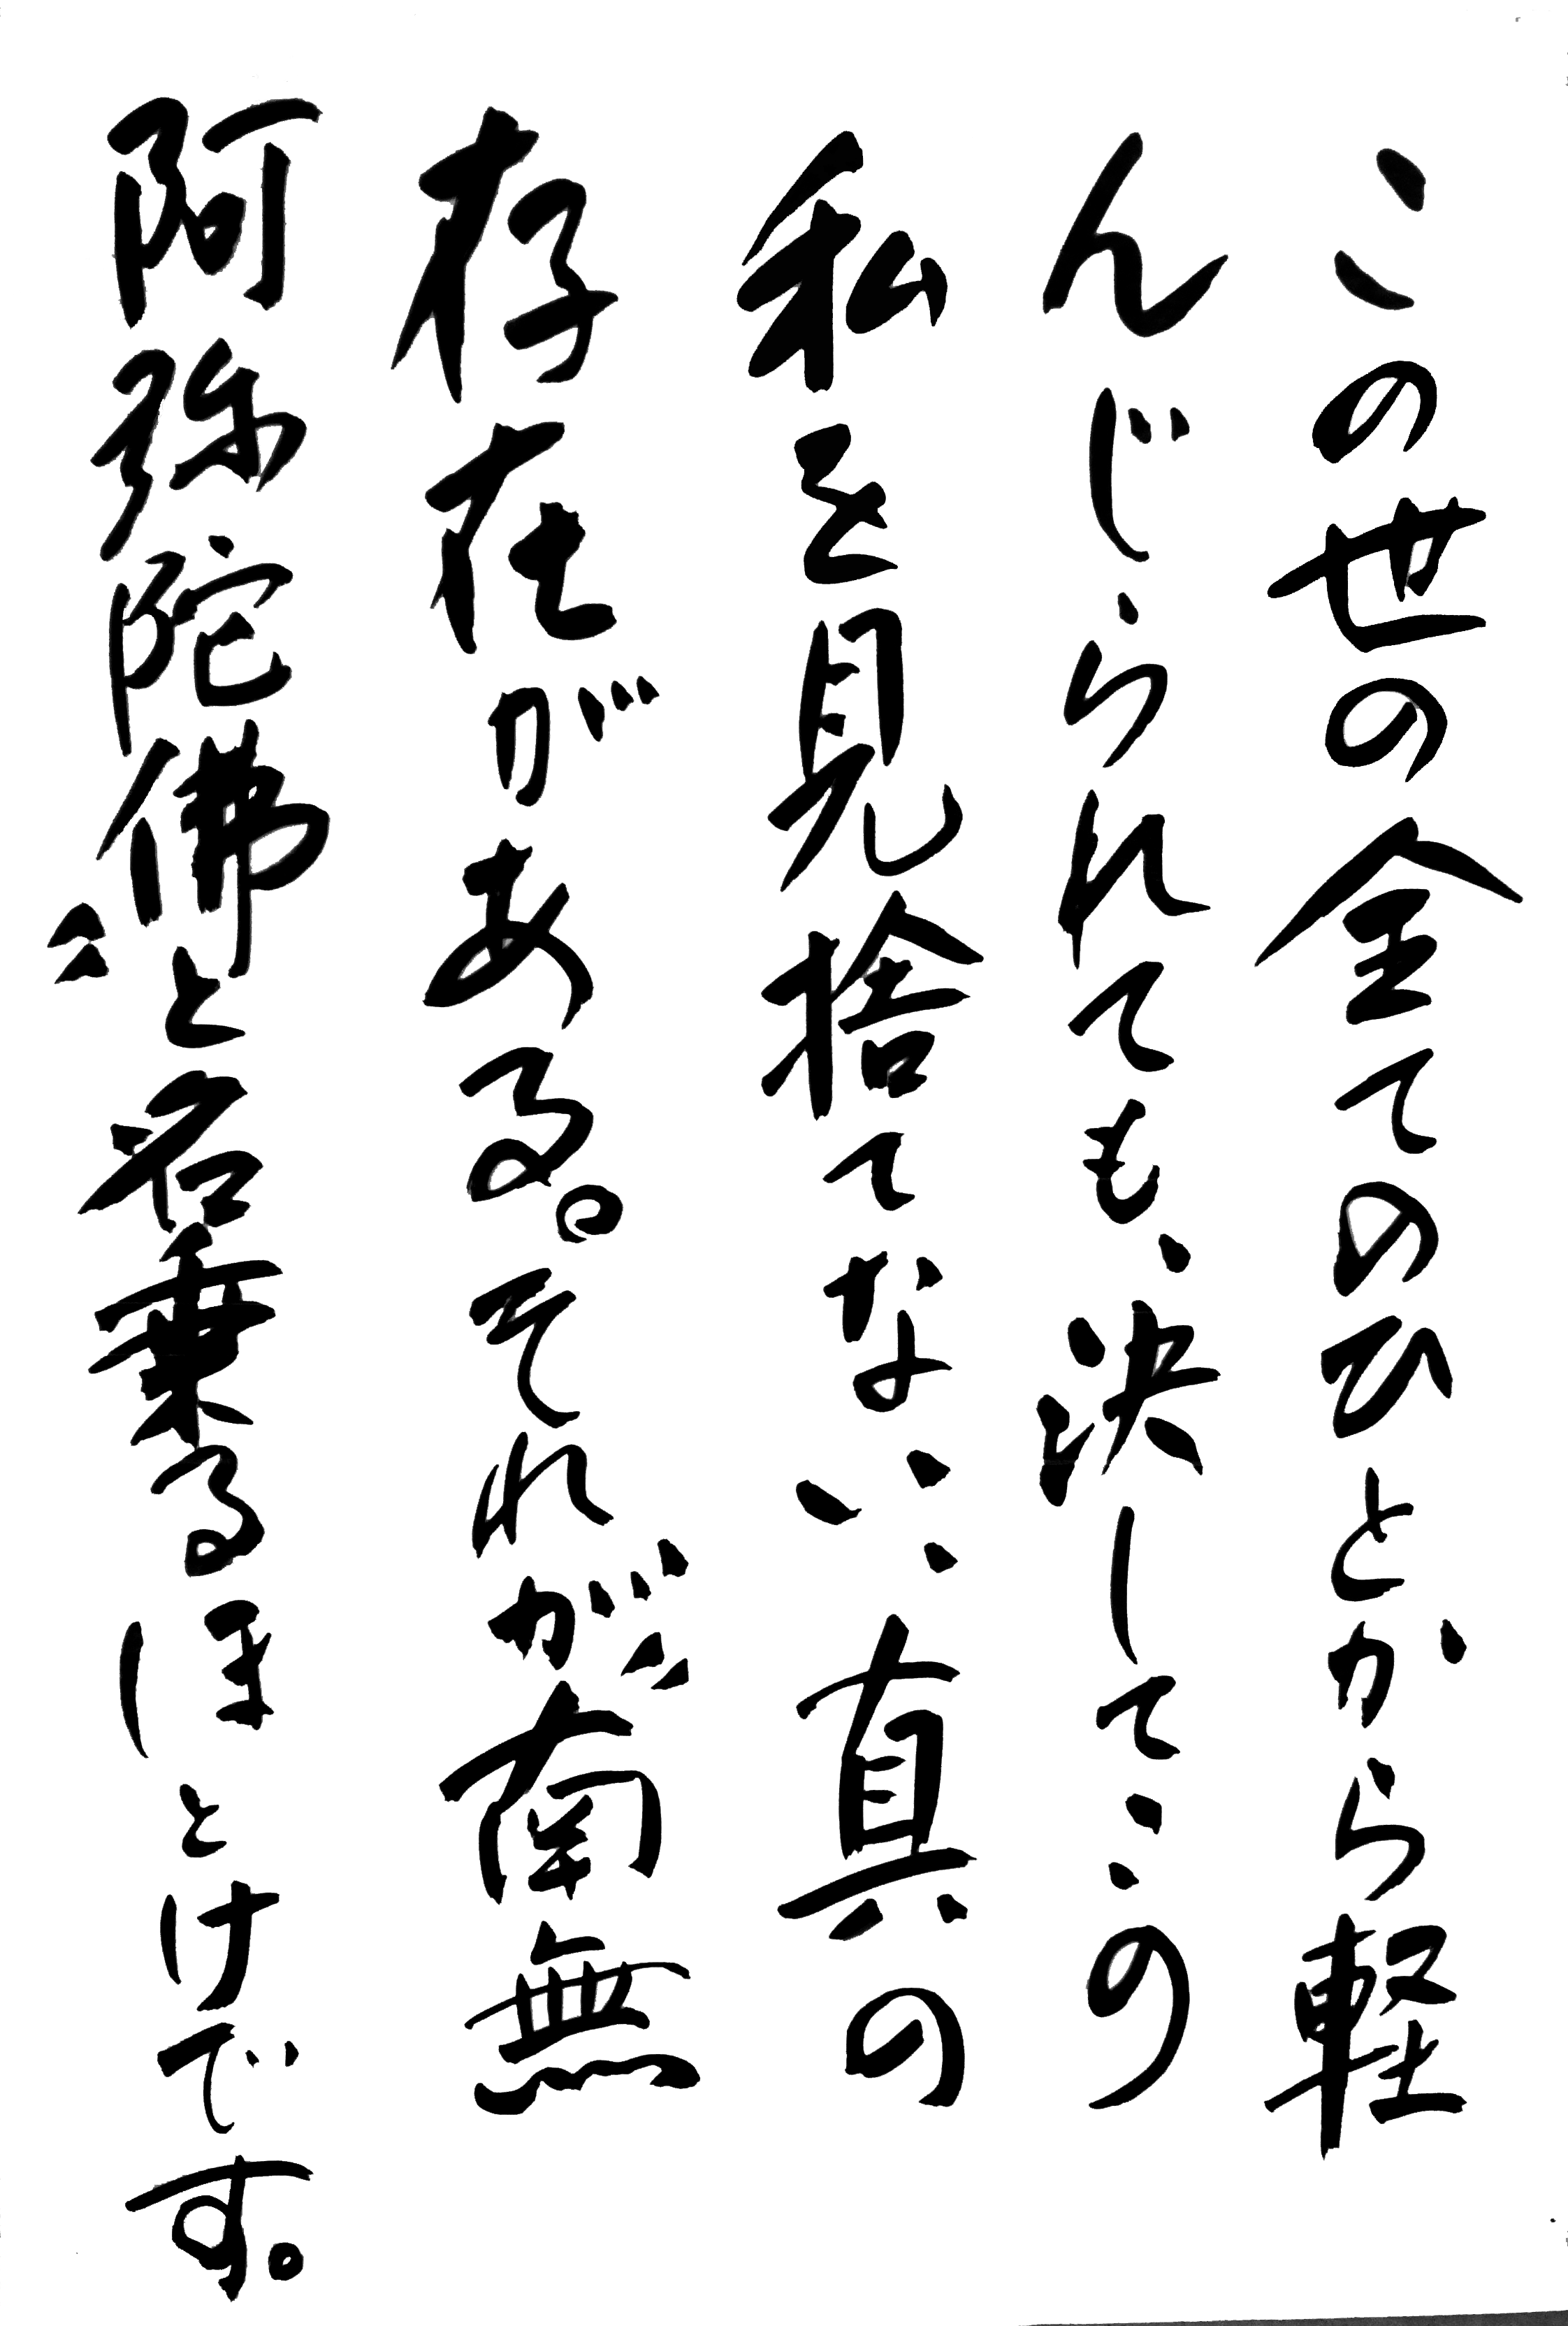 この世の全てのひとから軽
んじられても、決してこの
私を見捨てない、真の
存在がある。それが“南無
阿弥陀佛”と名乗るほとけです。